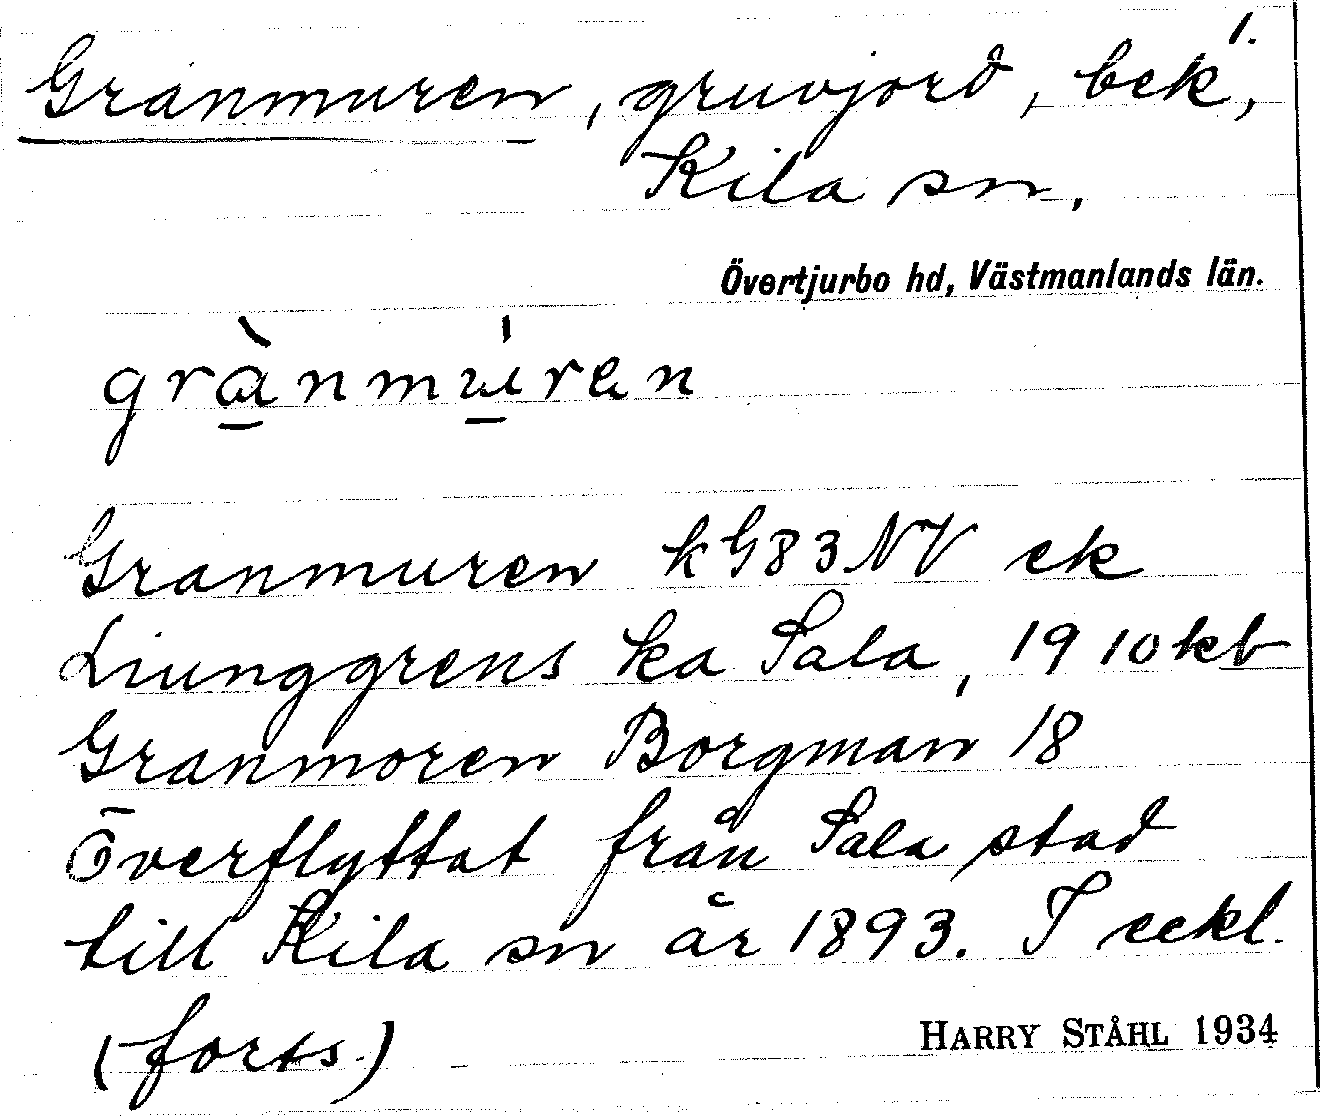 1.
Granmuren, gruvjord, bek,
Kila sn.
Övertjurbo hd, Västmanlands län.
grànmúren
Granmuren kG83NV ek
Liunggrens ka Sala, 1910 kb
Granmoren Borgman 18
Överflyttat från Sala stad
till Kila sn år 1893. I eckl.
(forts.)
HARRY STÅHL 1934